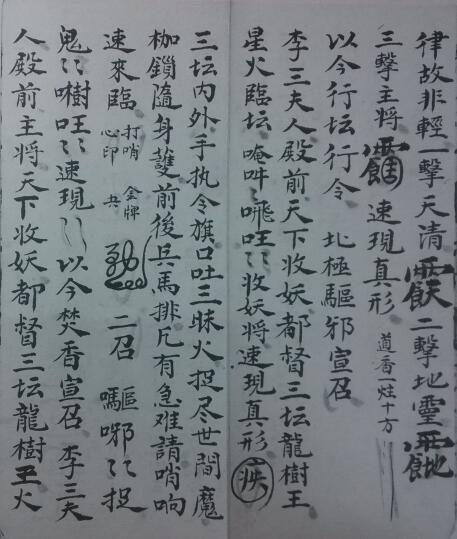 律故非輕一擊天清 二擊地靈
三擊主將 速現真形 道香一炷十方
以今行坛行令 北極驅邪宣召
李三夫人殿前天下收妖都督三坛龍樹王
星火臨坛唵吽 收妖将速現真形
三坛内外手执令旗口吐三昧火捉尽世間魔
枷鎖隨身護前後兵馬排 有急难請哨响
速來臨 打哨心印 金牌共 二召 驅邪 捉
鬼 速現 以今焚香宣召 李三夫
人殿前主將天下收妖都督三坛龍樹王火